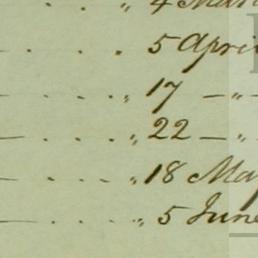 . . „ 4 Mar
. . . . 5 April
— . . . „ 17 — „ —
— . . . „ 22 — „
— . . . „ 18 May
— . . . „ 5 June